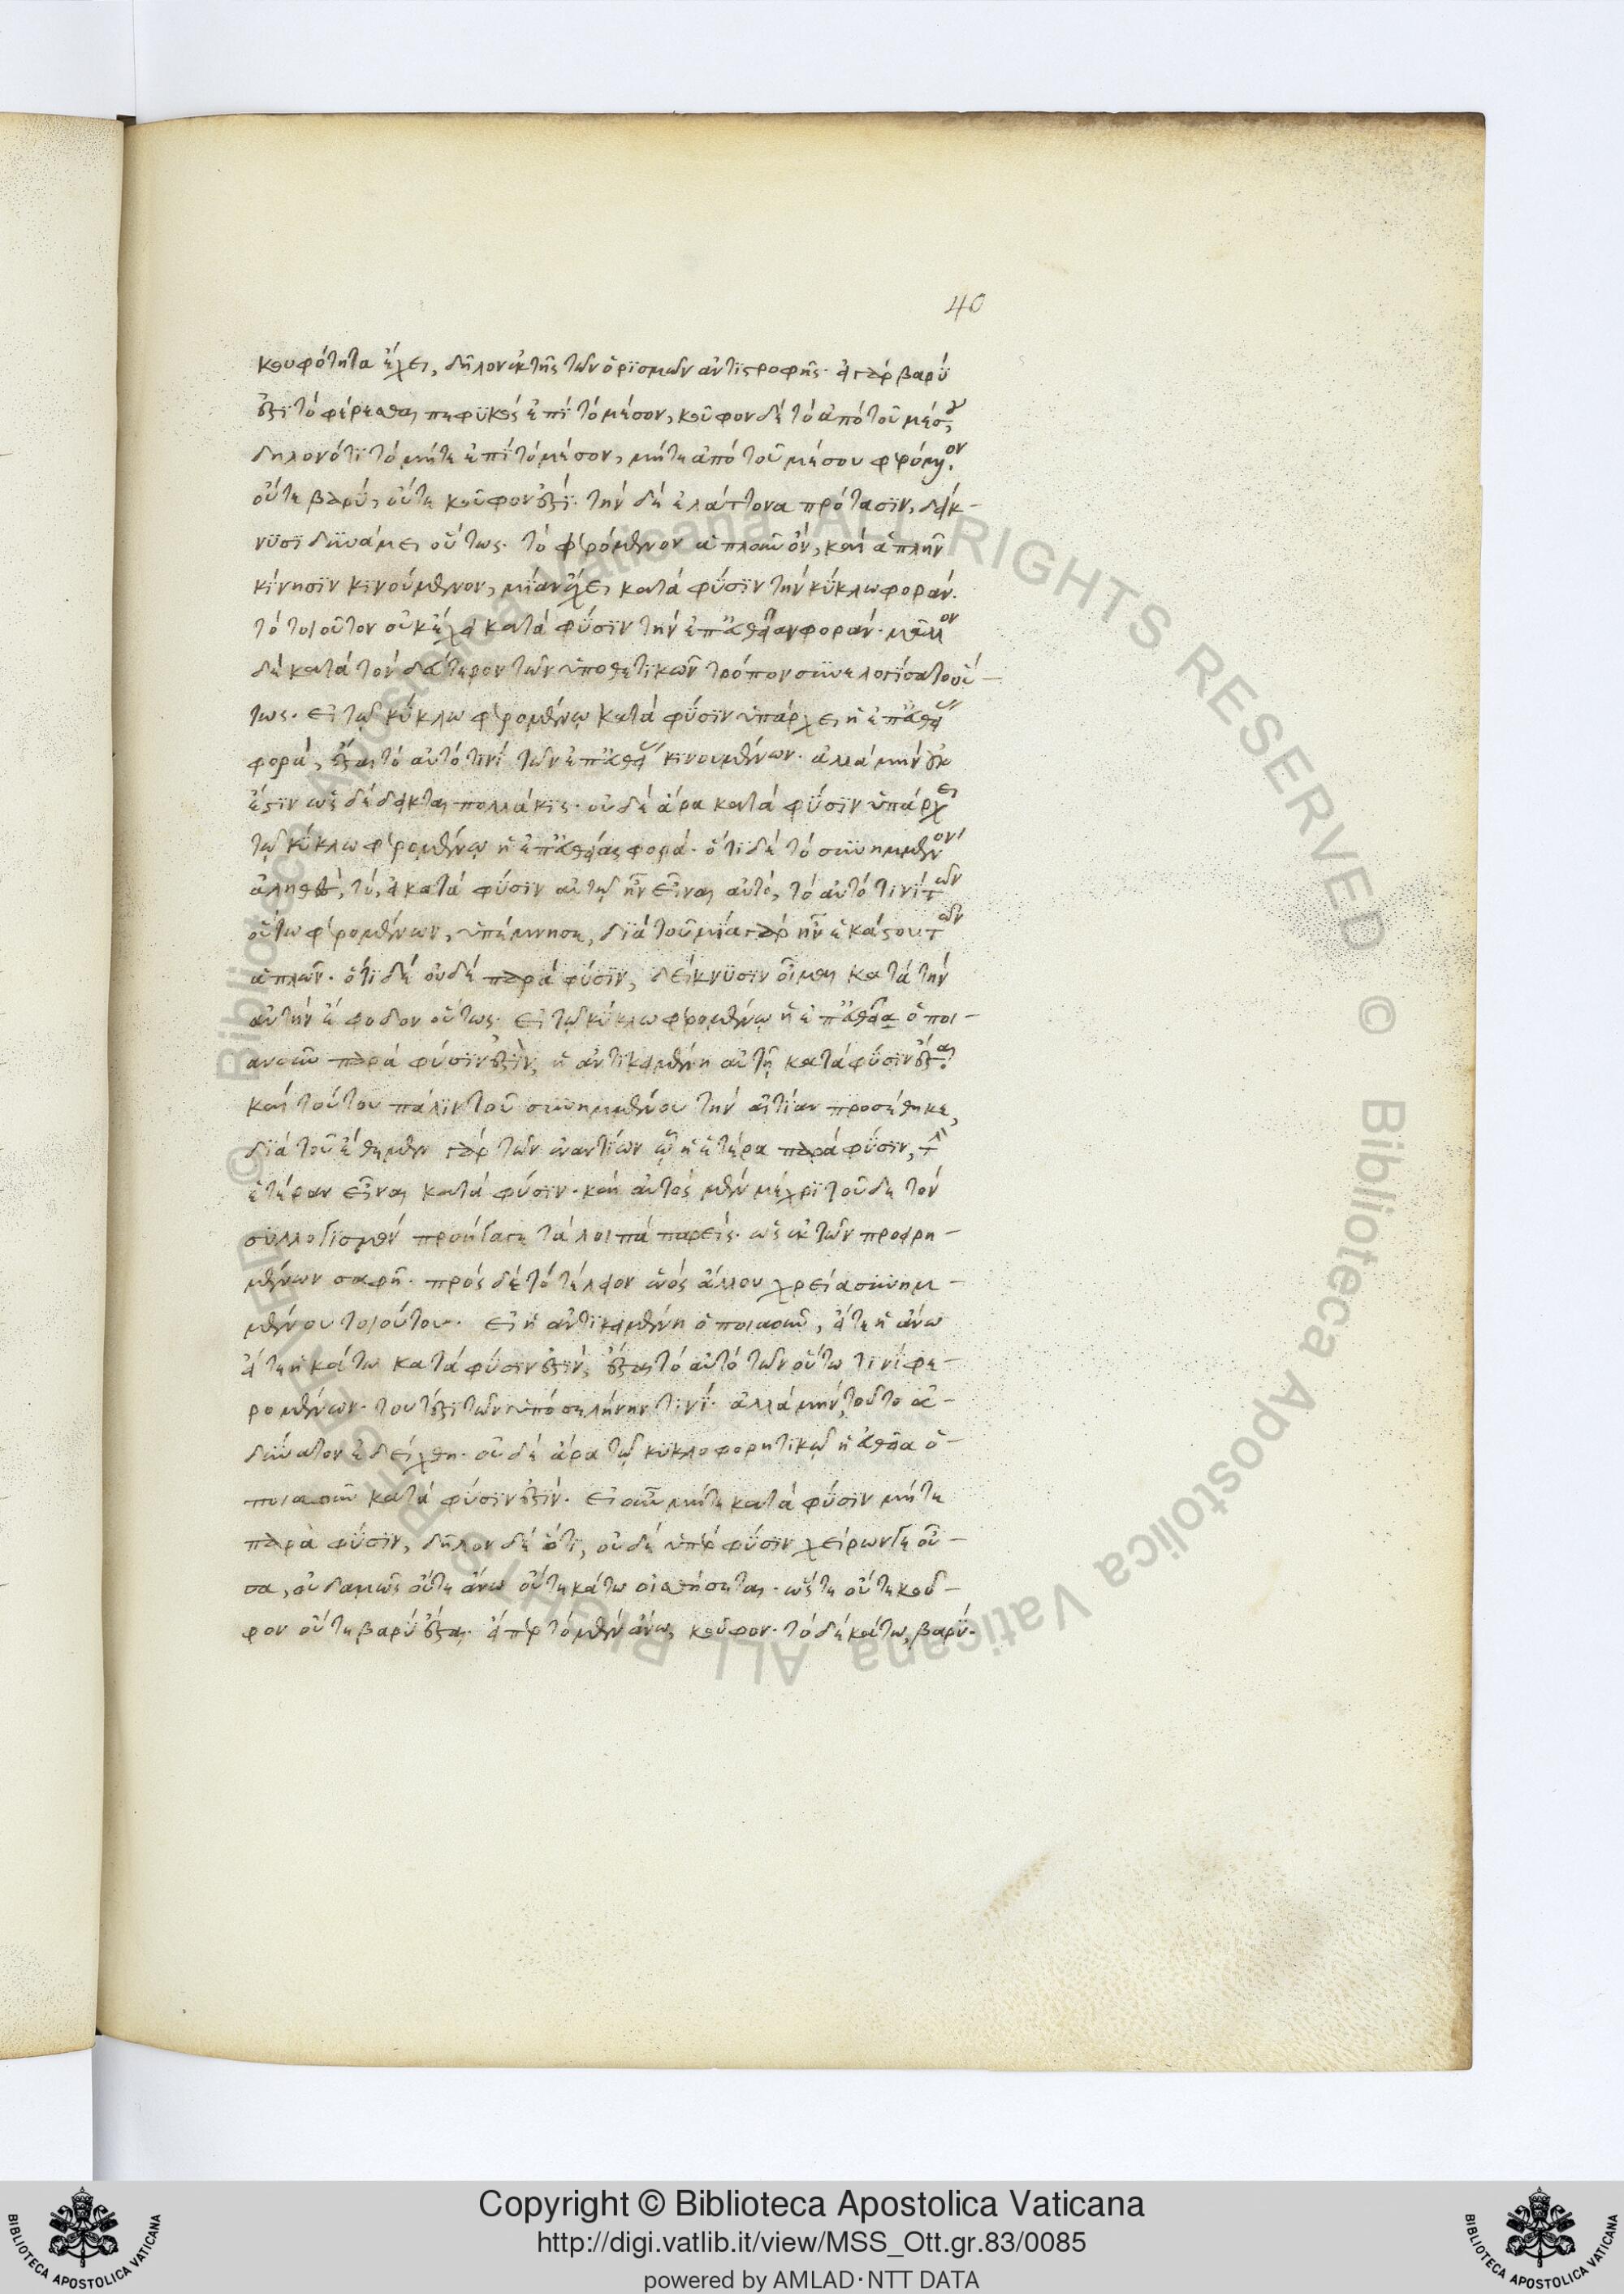 40
κουφότητα ἔχει, δῆλον ἐκ τῆς τῶν ὁρισμῶν ἀντιστροφῆς· εἰ γὰρ βαρύ
ἐστι τὸ φέρεσθαι πεφυκὸς ἐπὶ τὸ μέσον, κοῦφον δὲ τὸ ἀπὸ τοῦ μέσου,
δηλονότι τὸ μήτε ἐπὶ τὸ μέσον, μήτε ἀπὸ τοῦ μέσου φερόμενον.
οὔτε βαρύ, οὔτε κοῦφον ἐστί· τὴν δὲ ἐλάττονα πρότασιν, δείκ-
νυσι δυνάμει οὕτως· τὸ φερόμενον ἁπλοῦν ὄν, καὶ ἁπλῆν
κίνησιν κινούμενον, μίαν ἔχει κατὰ φύσιν τὴν κύκλω φοράν.
τὸ τοιοῦτον οὐκ ἔχει κατὰ φύσιν τὴν ἐπ' εὐθείαν φοράν· μᾶλλον
δὲ κατὰ τὸν δεύτερον τῶν ὑποθετικῶν τρόπον συνελογίσατο οὕ-
τως· εἰ τῷ κύκλω φερομένῳ κατὰ φύσιν ὑπάρχει ἡ ἐπ' εὐθείας
φορά, ἔσται τὸ αὐτό τινι τῶν ἐπ' εὐθείας κινουμένων· ἀλλὰ μὴν οὐκ
ἔστιν ὡς δέδεικται πολλάκις· οὐδὲ ἄρα κατὰ φύσιν ὑπάρχει
τῷ κύκλω φερομένῳ ἡ ἐπ' εὐθείας φορά· ὅτι δὲ τὸ συνημμένον
ἀληθὲς, τό, εἰ κατὰ φύσιν αὐτῷ ἦν εἶναι αὐτό, τὸ αὐτό τινι τῶν
οὕτω φερομένων, ὑπέμνησε, διὰ τοῦ μία γὰρ ἦν ἑκάστου τῶν
ἁπλῶν· ὅτι δὲ οὐδὲ παρὰ φύσιν, δείκνυσιν οἶμαι κατὰ τὴν
αὐτὴν ἔφοδον οὕτως· εἰ τῷ κύκλω φερομένῳ ἡ ἐπ' εὐθεῖα ὁποι-
ανοῦν παρὰ φύσιν ἐστὶν, ἡ ἀντικειμένη αὐτῇ κατὰ φύσιν ἔσται.
καὶ τούτου πάλιν τοῦ συνημμένου τὴν αἰτίαν προσέθηκε,
διὰ τοῦ ἔθεμεν γὰρ τῶν ἐναντίων ᾧ ἡ ἑτέρα παρὰ φύσιν, τὴν
ἑτέραν εἶναι κατὰ φύσιν· καὶ αὐτὸς μὲν μέχρι τοῦδε τὸν
συλλογισμὸν προήγαγε τὰ λοιπὰ παρεὶς· ὡς ἐκ τῶν προειρη-
μένων σαφῆ· πρὸς δὲ τὸ τέλειον ἑνὸς ἄλλου χρεία συνημ-
μένου τοιούτου· εἰ ἡ ἀντικειμένη ὁποιαοῦν, εἴτε ἡ ἄνω
εἴτε ἡ κάτω κατὰ φύσιν ἐστίν, ἔσται τὸ αὐτὸ τῶν οὕτω τινὶ φε-
ρομένων· τουτέστι τῶν ὑπὸ σελήνην τινί· ἀλλὰ μὴν τοῦτο ἀ-
δύνατον ἐδείχθη· οὐδὲ ἄρα τῷ κυκλοφορητικῷ ἡ εὐθεῖα ὁ-
ποιαοῦν κατὰ φύσιν ἐστίν· εἰ οὖν μήτε κατὰ φύσιν μήτε
παρὰ φύσιν, δῆλον δὲ ὅτι, οὐδὲ ὑπὲρ φύσιν χείρων γε οὖ-
σα, οὐδαμῶς οὔτε ἄνω οὔτε κάτω οἰσθήσεται· ὥστε οὔτε κοῦ-
φον οὔτε βαρὺ ἔσται· εἴπερ τὸ μὲν ἄνω, κοῦφον· τὸ δὲ κάτω, βαρύ.
© Biblioteca Apostolica Vaticana ALL RIGHTS RESERVED © Biblioteca Apostolica Vaticana ALL RIGHTS RESERVED
Copyright © Biblioteca Apostolica Vaticana
http://digi.vatlib.it/view/MSS_Ott.gr.83/0085
powered by AMLAD·NTT DATA
BIBLIOTECA APOSTOLICA VATICANA
BIBLIOTECA APOSTOLICA VATICANA